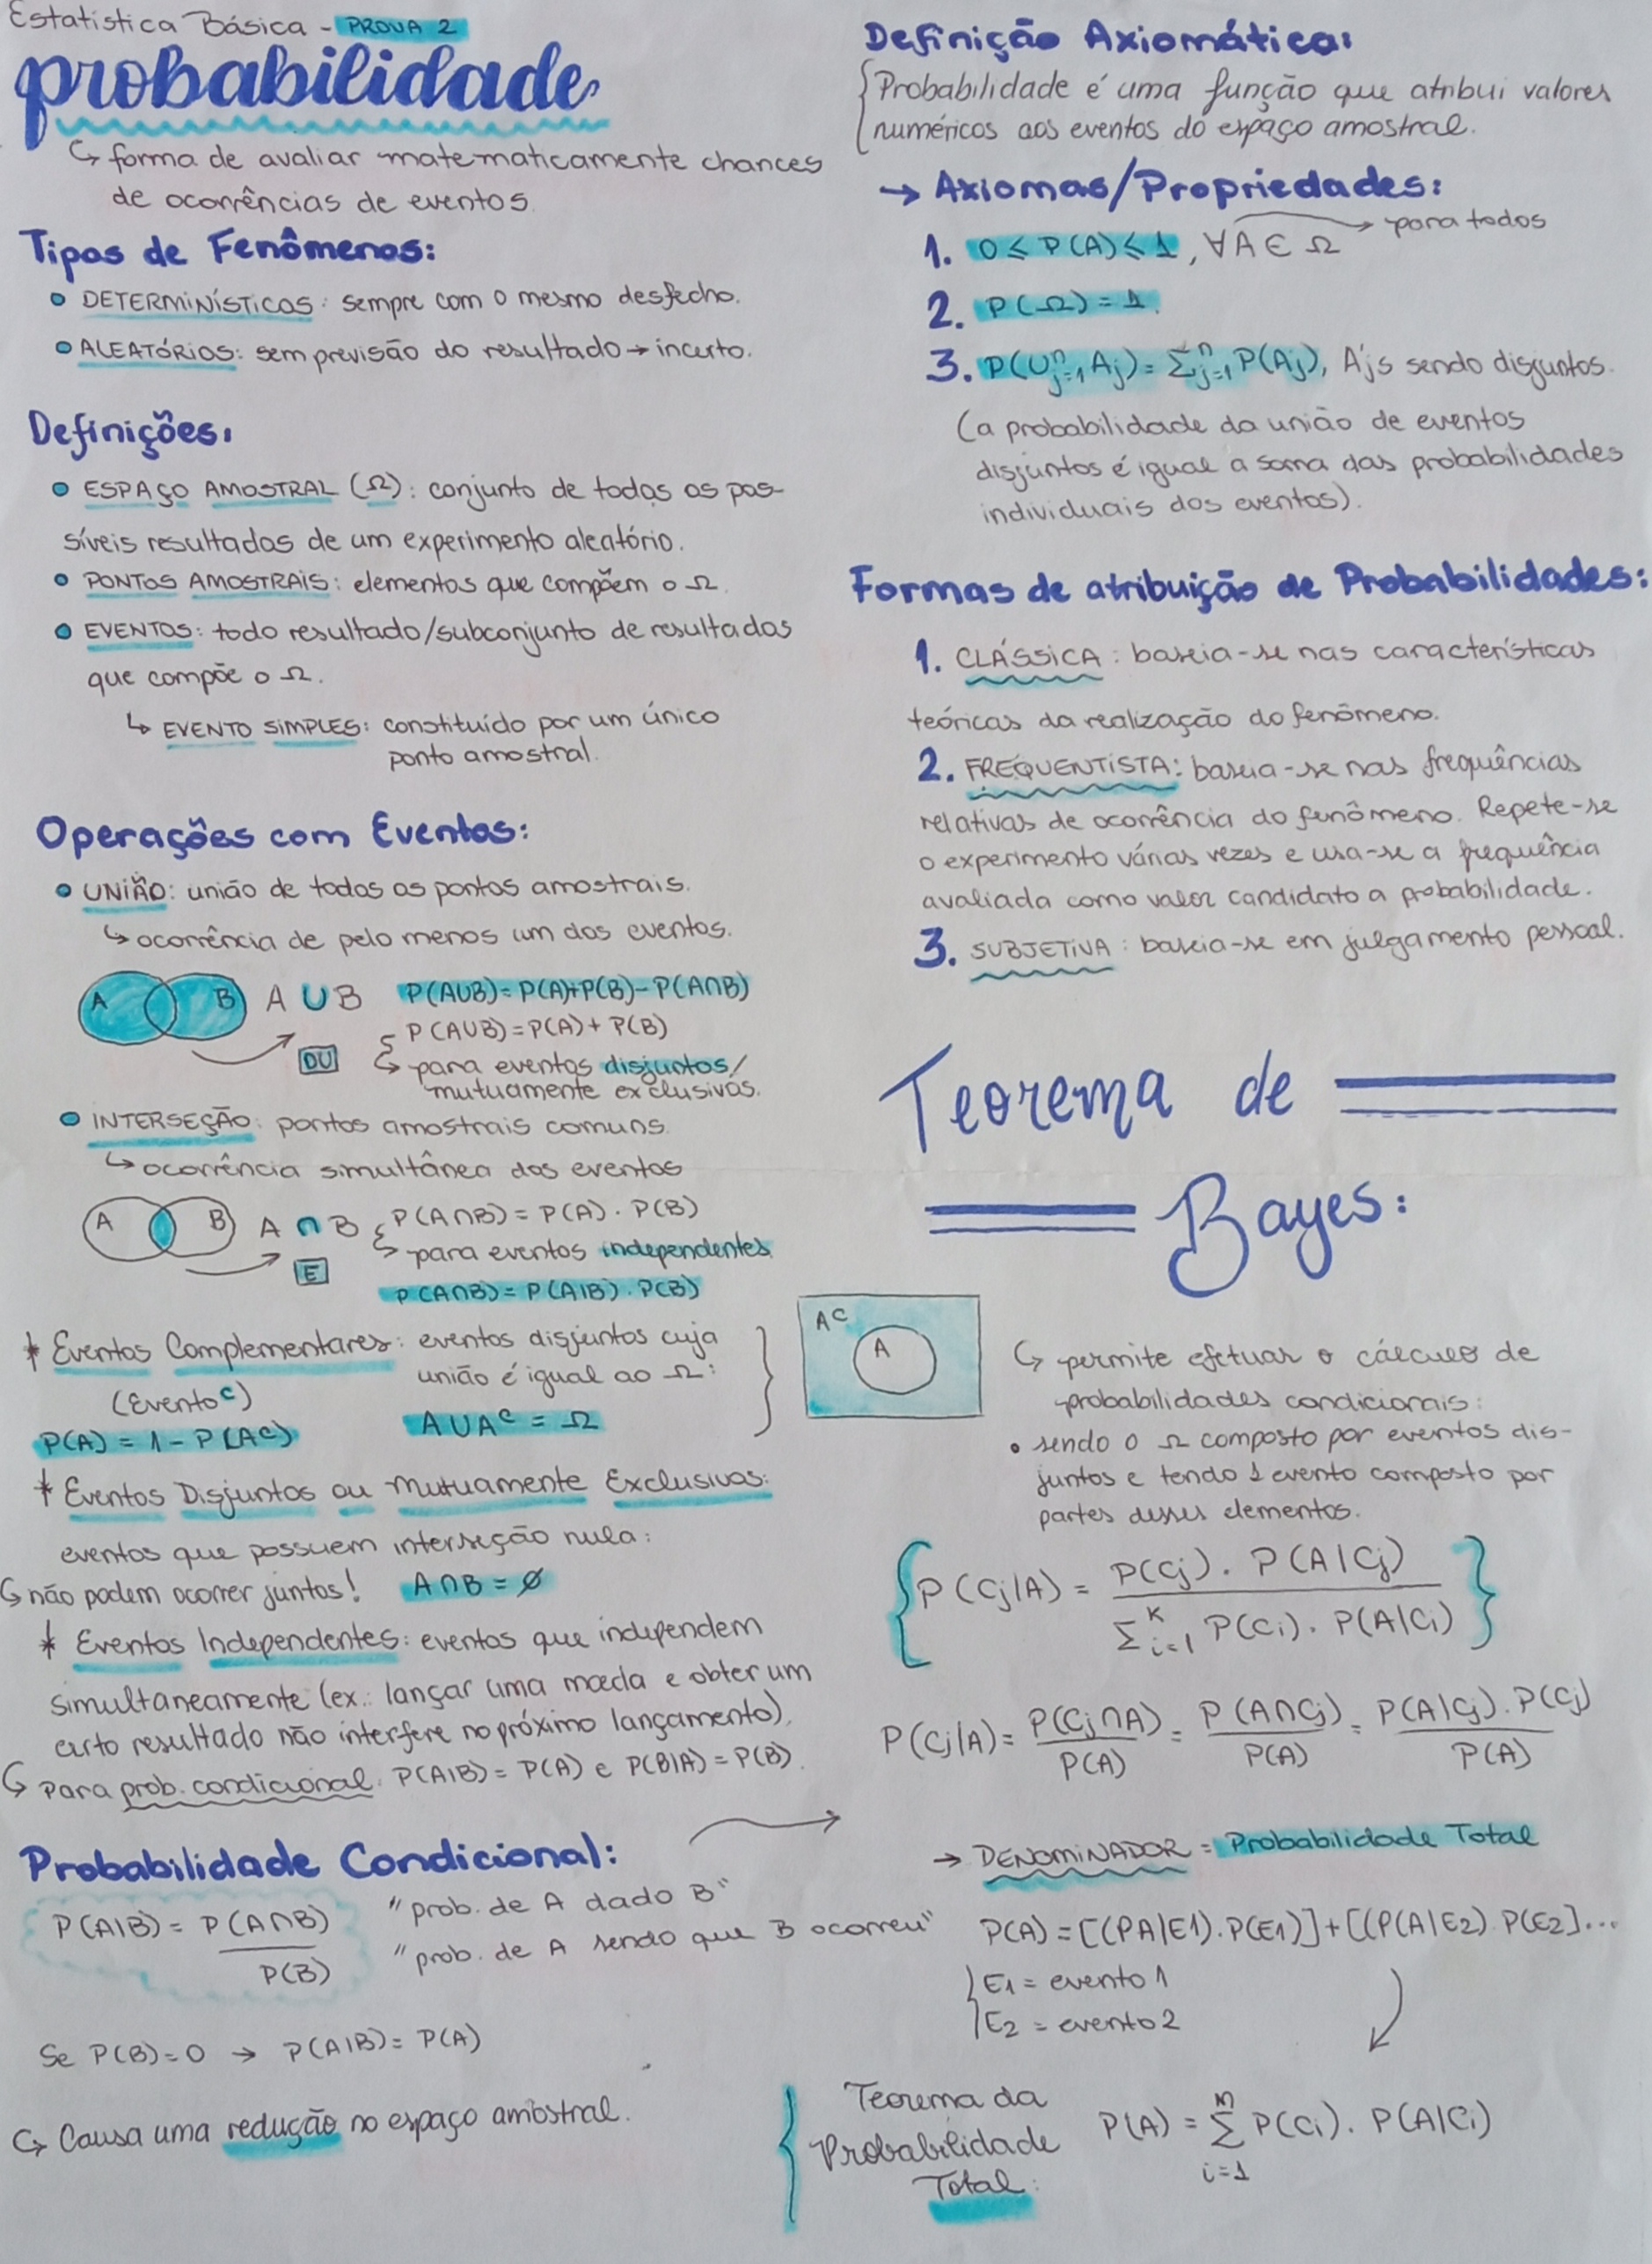 Estatística Básica - PROVA 2
probabilidade
↳ forma de avaliar matematicamente chances
de ocorrências de eventos.
Tipos de Fenômenos:
• DETERMINÍSTICOS: sempre com o mesmo desfecho.
• ALEATÓRIOS: sem previsão do resultado → incerto.
Definições:
• ESPAÇO AMOSTRAL (Ω): conjunto de todos os pos-
síveis resultados de um experimento aleatório.
• PONTOS AMOSTRAIS: elementos que compõem o Ω.
• EVENTOS: todo resultado/subconjunto de resultados
que compõe o Ω.
↳ EVENTO SIMPLES: constituído por um único
ponto amostral.
Operações com Eventos:
• UNIÃO: união de todos os pontos amostrais.
↳ ocorrência de pelo menos um dos eventos.
A B A ∪ B P(A∪B)= P(A)+P(B)- P(A∩B)
P(A∪B)=P(A)+ P(B)
OU ↳ para eventos disjuntos/
mutuamente exclusivos.
• INTERSEÇÃO: pontos amostrais comuns.
↳ ocorrência simultânea dos eventos
A B A ∩ B P(A∩B) = P(A) . P(B)
↳ para eventos independentes.
E
P(A∩B)= P(A|B) . P(B)
* Eventos Complementares: eventos disjuntos cuja
união é igual ao Ω:
(Evento^c)
P(A) = 1 - P(A^c) A∪A^c = Ω
A^c
A
* Eventos Disjuntos ou Mutuamente Exclusivos:
eventos que possuem interseção nula:
↳ não podem ocorrer juntos! A∩B = ∅
* Eventos Independentes: eventos que independem
simultaneamente (ex.: lançar uma moeda e obter um
certo resultado não interfere no próximo lançamento).
↳ Para prob. condicional: P(A|B) = P(A) e P(B|A) = P(B).
Probabilidade Condicional:
P(A|B) = P(A∩B) / P(B)
"prob. de A dado B"
"prob. de A sendo que B ocorreu"
Se P(B)=0 → P(A|B)= P(A)
↳ Causa uma redução no espaço amostral.
Definição Axiomática:
{Probabilidade é uma função que atribui valores
numéricos aos eventos do espaço amostral.
→ Axiomas/Propriedades:
1. 0 ≤ P(A) ≤ 1, ∀A ∈ Ω → para todos
2. P(Ω) = 1.
3. P(∪^n_{j=1} A_j) = Σ^n_{j=1} P(A_j), A'js sendo disjuntos.
(a probabilidade da união de eventos
disjuntos é igual a soma das probabilidades
individuais dos eventos).
Formas de atribuição de Probabilidades:
1. CLÁSSICA: baseia-se nas características
teóricas da realização do fenômeno.
2. FREQUENTISTA: baseia-se nas frequências
relativas de ocorrência do fenômeno. Repete-se
o experimento várias vezes e usa-se a frequência
avaliada como valor candidato a probabilidade.
3. SUBJETIVA: baseia-se em julgamento pessoal.
Teorema de
Bayes:
↳ permite efetuar o cálculo de
probabilidades condicionais:
• sendo o Ω composto por eventos dis-
juntos e tendo 1 evento composto por
partes desses elementos.
{P(Cj|A) = P(Cj) . P(A|Cj) / Σ^K_{i=1} P(Ci) . P(A|Ci)}
P(Cj|A) = P(Cj∩A) / P(A) = P(A∩Cj) / P(A) = P(A|Cj) . P(Cj) / P(A)
→ DENOMINADOR = Probabilidade Total
P(A) = [(PA|E1) . P(E1)] + [(P(A|E2) . P(E2]...
E1 = evento 1
E2 = evento 2
Teorema da
Probabilidade
Total:
P(A) = Σ^n_{i=1} P(Ci) . P(A|Ci)